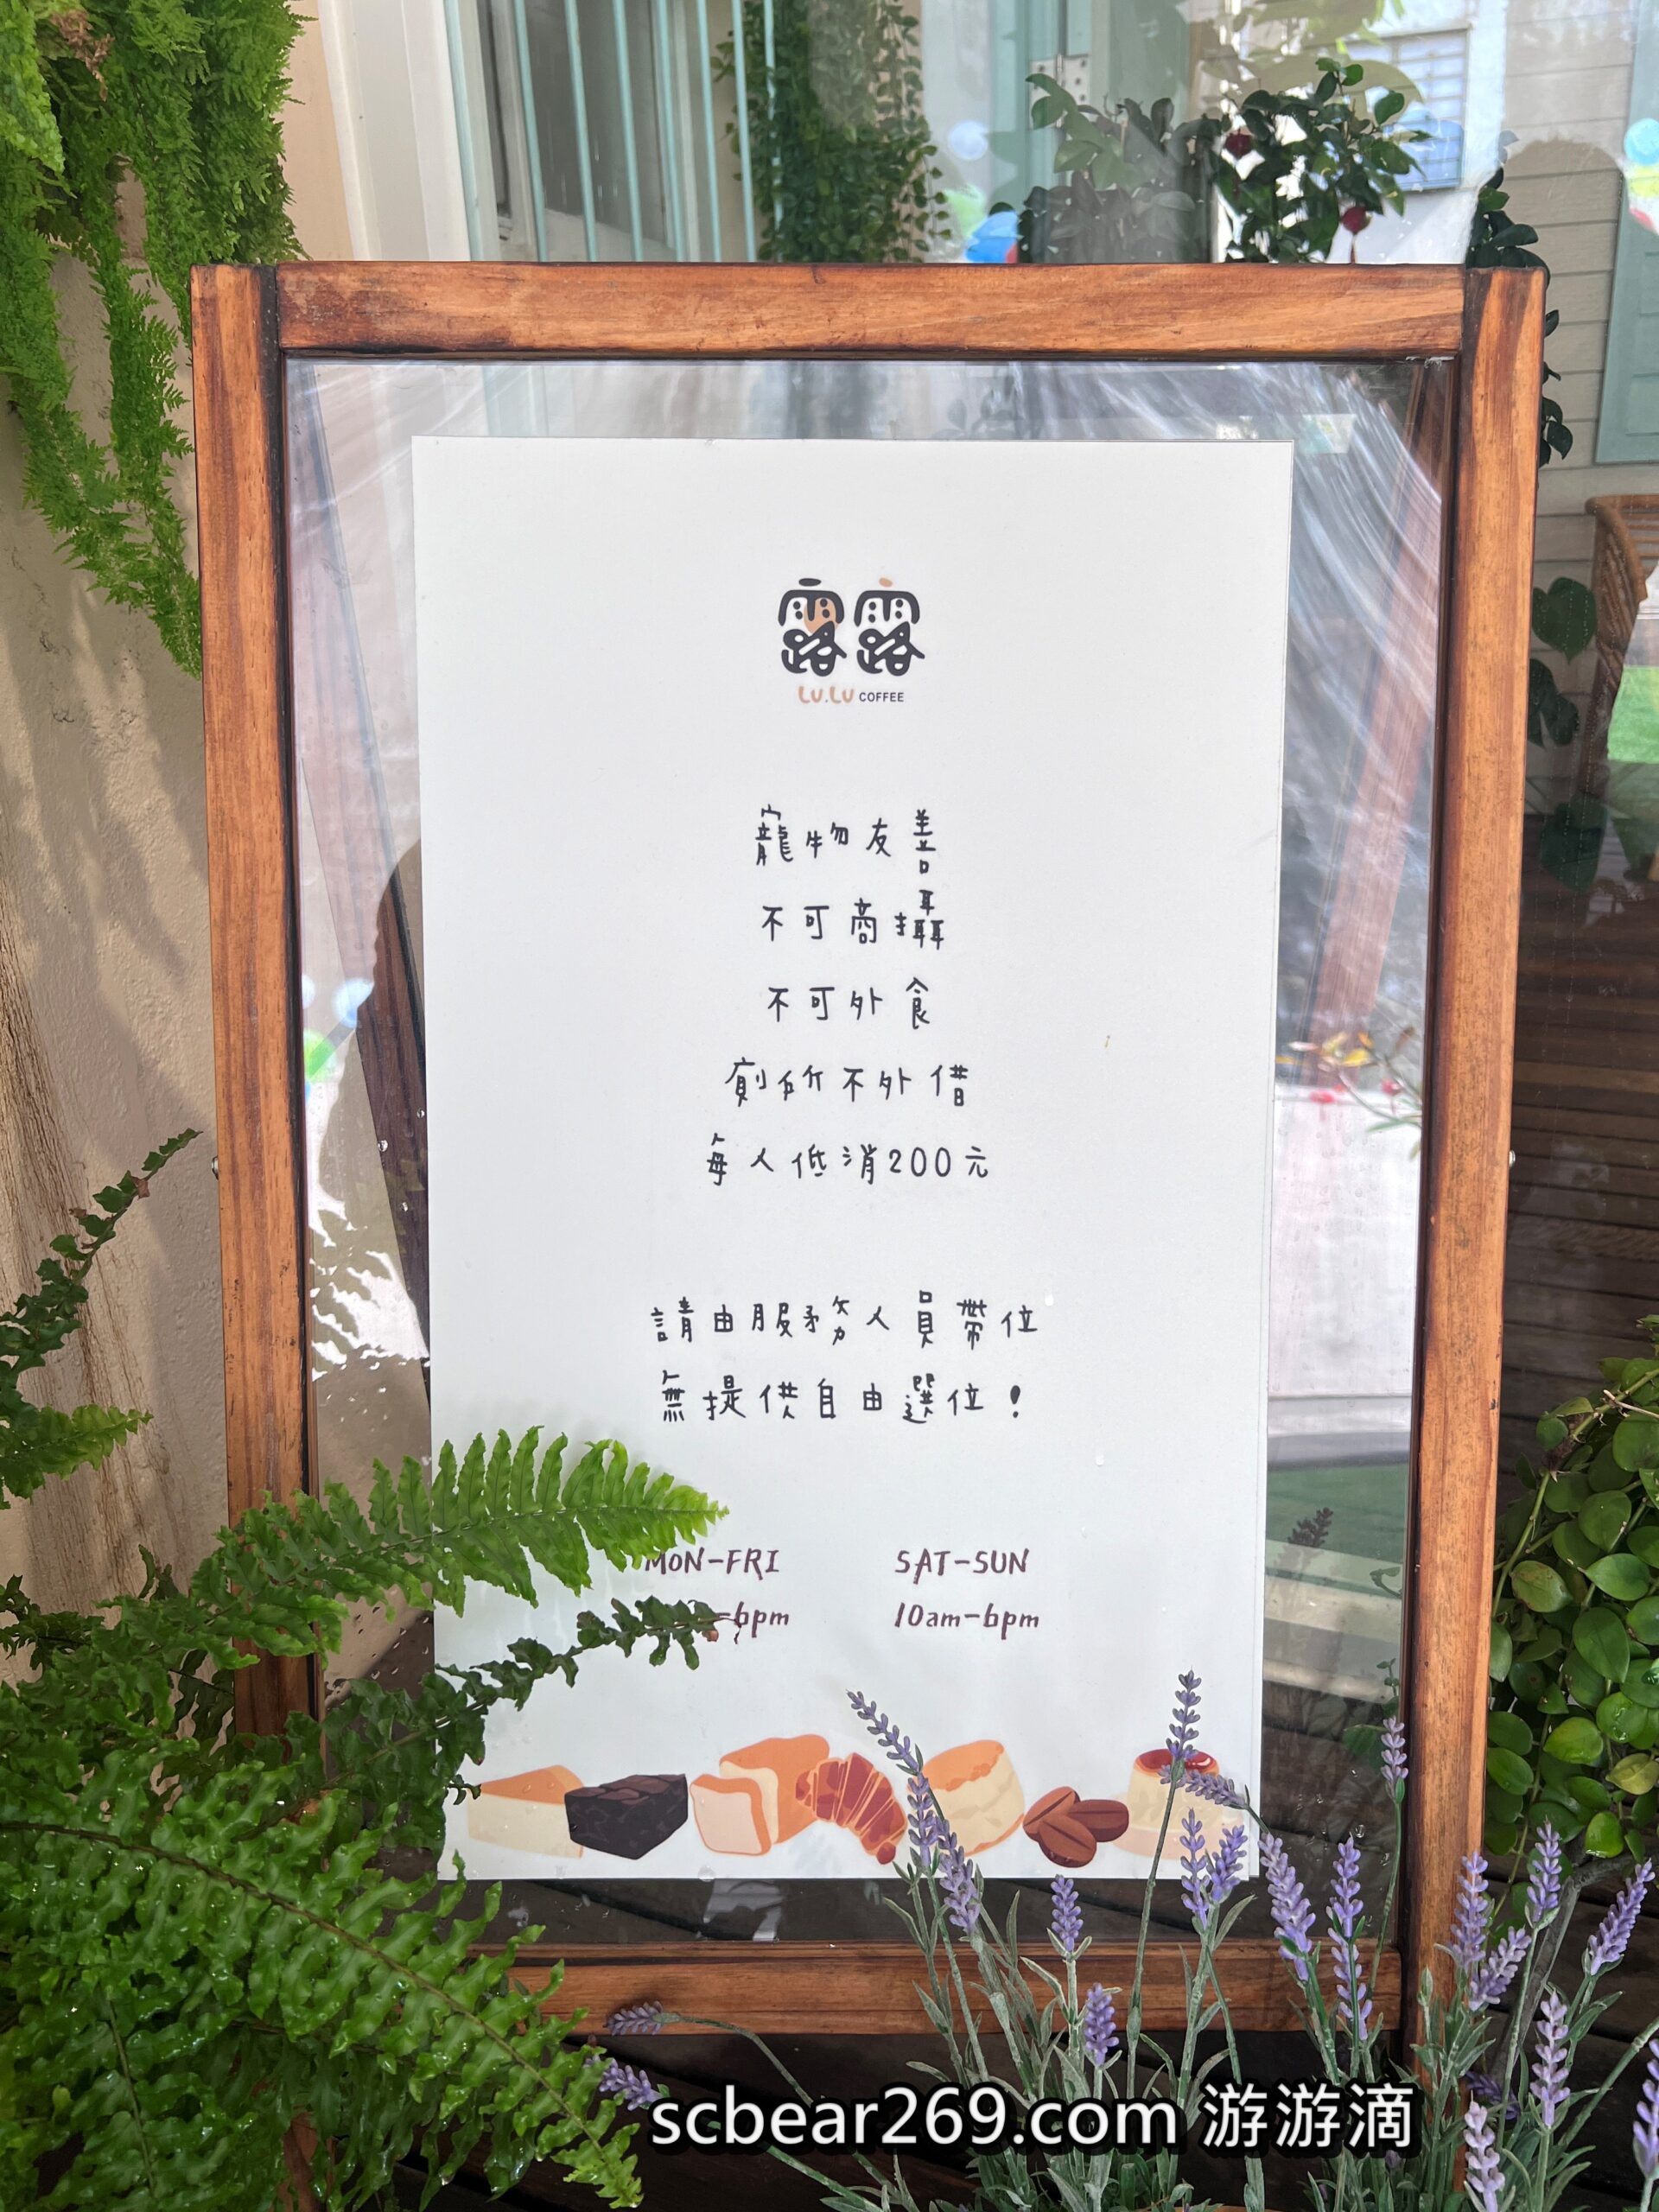 露露
LU.LU COFFEE
寵物友善
不可商攝
不可外食
廁所不外借
每人低消200元
請由服務人員帶位
無提供自由選位！
MON-FRI SAT-SUN
-6pm 10am-6pm
scbear269.com 游游滴